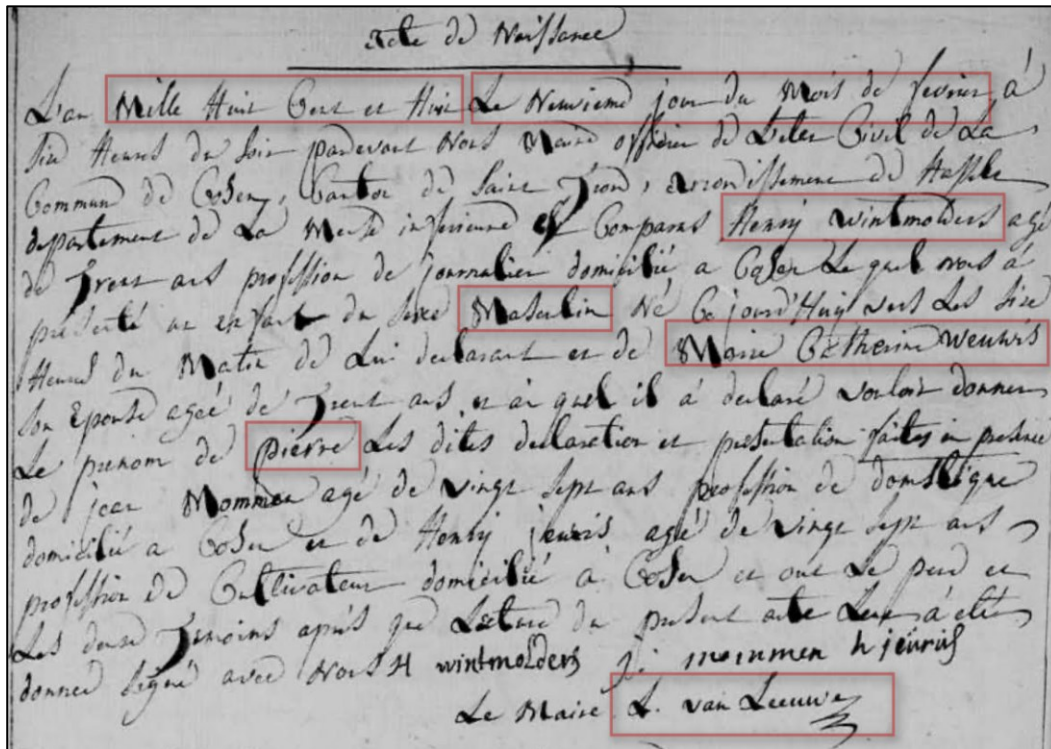 Acte de Naissance
L'an Mille Huit Cent et Huit Le Neuvieme jour du Mois de fevrier á
Six Heures du Soir pardevant Nous Maire officier de L'etat Civil de La
Commun de Cosen, Canton de Saint Trond, arrondissement de Hasselt
departement de La Meuse inferieure est Comparus Henry wintmolders agé
de Trent ans profession de journalier domicilié a Cosen Le quel nous á
présenté un enfant du sexe Masculin Né Ce jourd'Huy vers Les Sixe
Heures du Matin de Lui declarant et de Marie Catherine Weuwis
son Epouse ageé de Trent ans, et au quel il á declaré vouloir donner
Le prenom de pierre Les dites declaration et presentation faites en presence
de jean Mommen agé de vingt sept ans profession de domestique
domicilié a Cosen et de Henry jeuris agé de vingt sept ans
profession de Cultivateur domicilié á Cosen et ont Le pere et
Les deux Temoins aprés que Lecture du present acte Leur á eté
donneé Signé avec Nous H wintmolders mommen h jeuris
Le Maire L. van Leeuwe